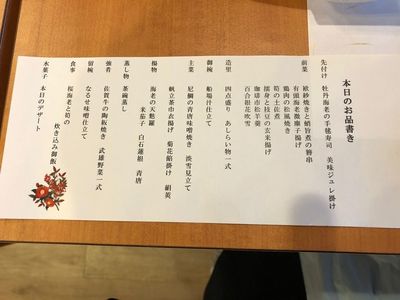 本日のお品書き
先付け 牡丹海老の手毬寿司 美味ジュレ掛け
前菜 袱紗焼きと蛸旨煮の簪串
有頭海老微塵子揚げ
鶏肉の松風焼き
筍の土佐煮
蟹身と枝豆の玄米揚げ
珈琲市松羊羹
百合根花吹雪
造里 四点盛り あしらい物一式
御椀 船場汁仕立て
主菜 尼鯛の青唐味噌焼き 淡雪見立て
帆立茶巾衣揚げ 菊花餡掛け 絹莢
揚物 海老の天麩羅
米茄子 白石蓮根 青唐
蒸し物 茶碗蒸し
強肴 佐賀牛の陶板焼き 武雄野菜一式
留椀 なるせ味噌仕立て
食事 桜海老と筍の
炊き込み御飯
水菓子 本日のデザート